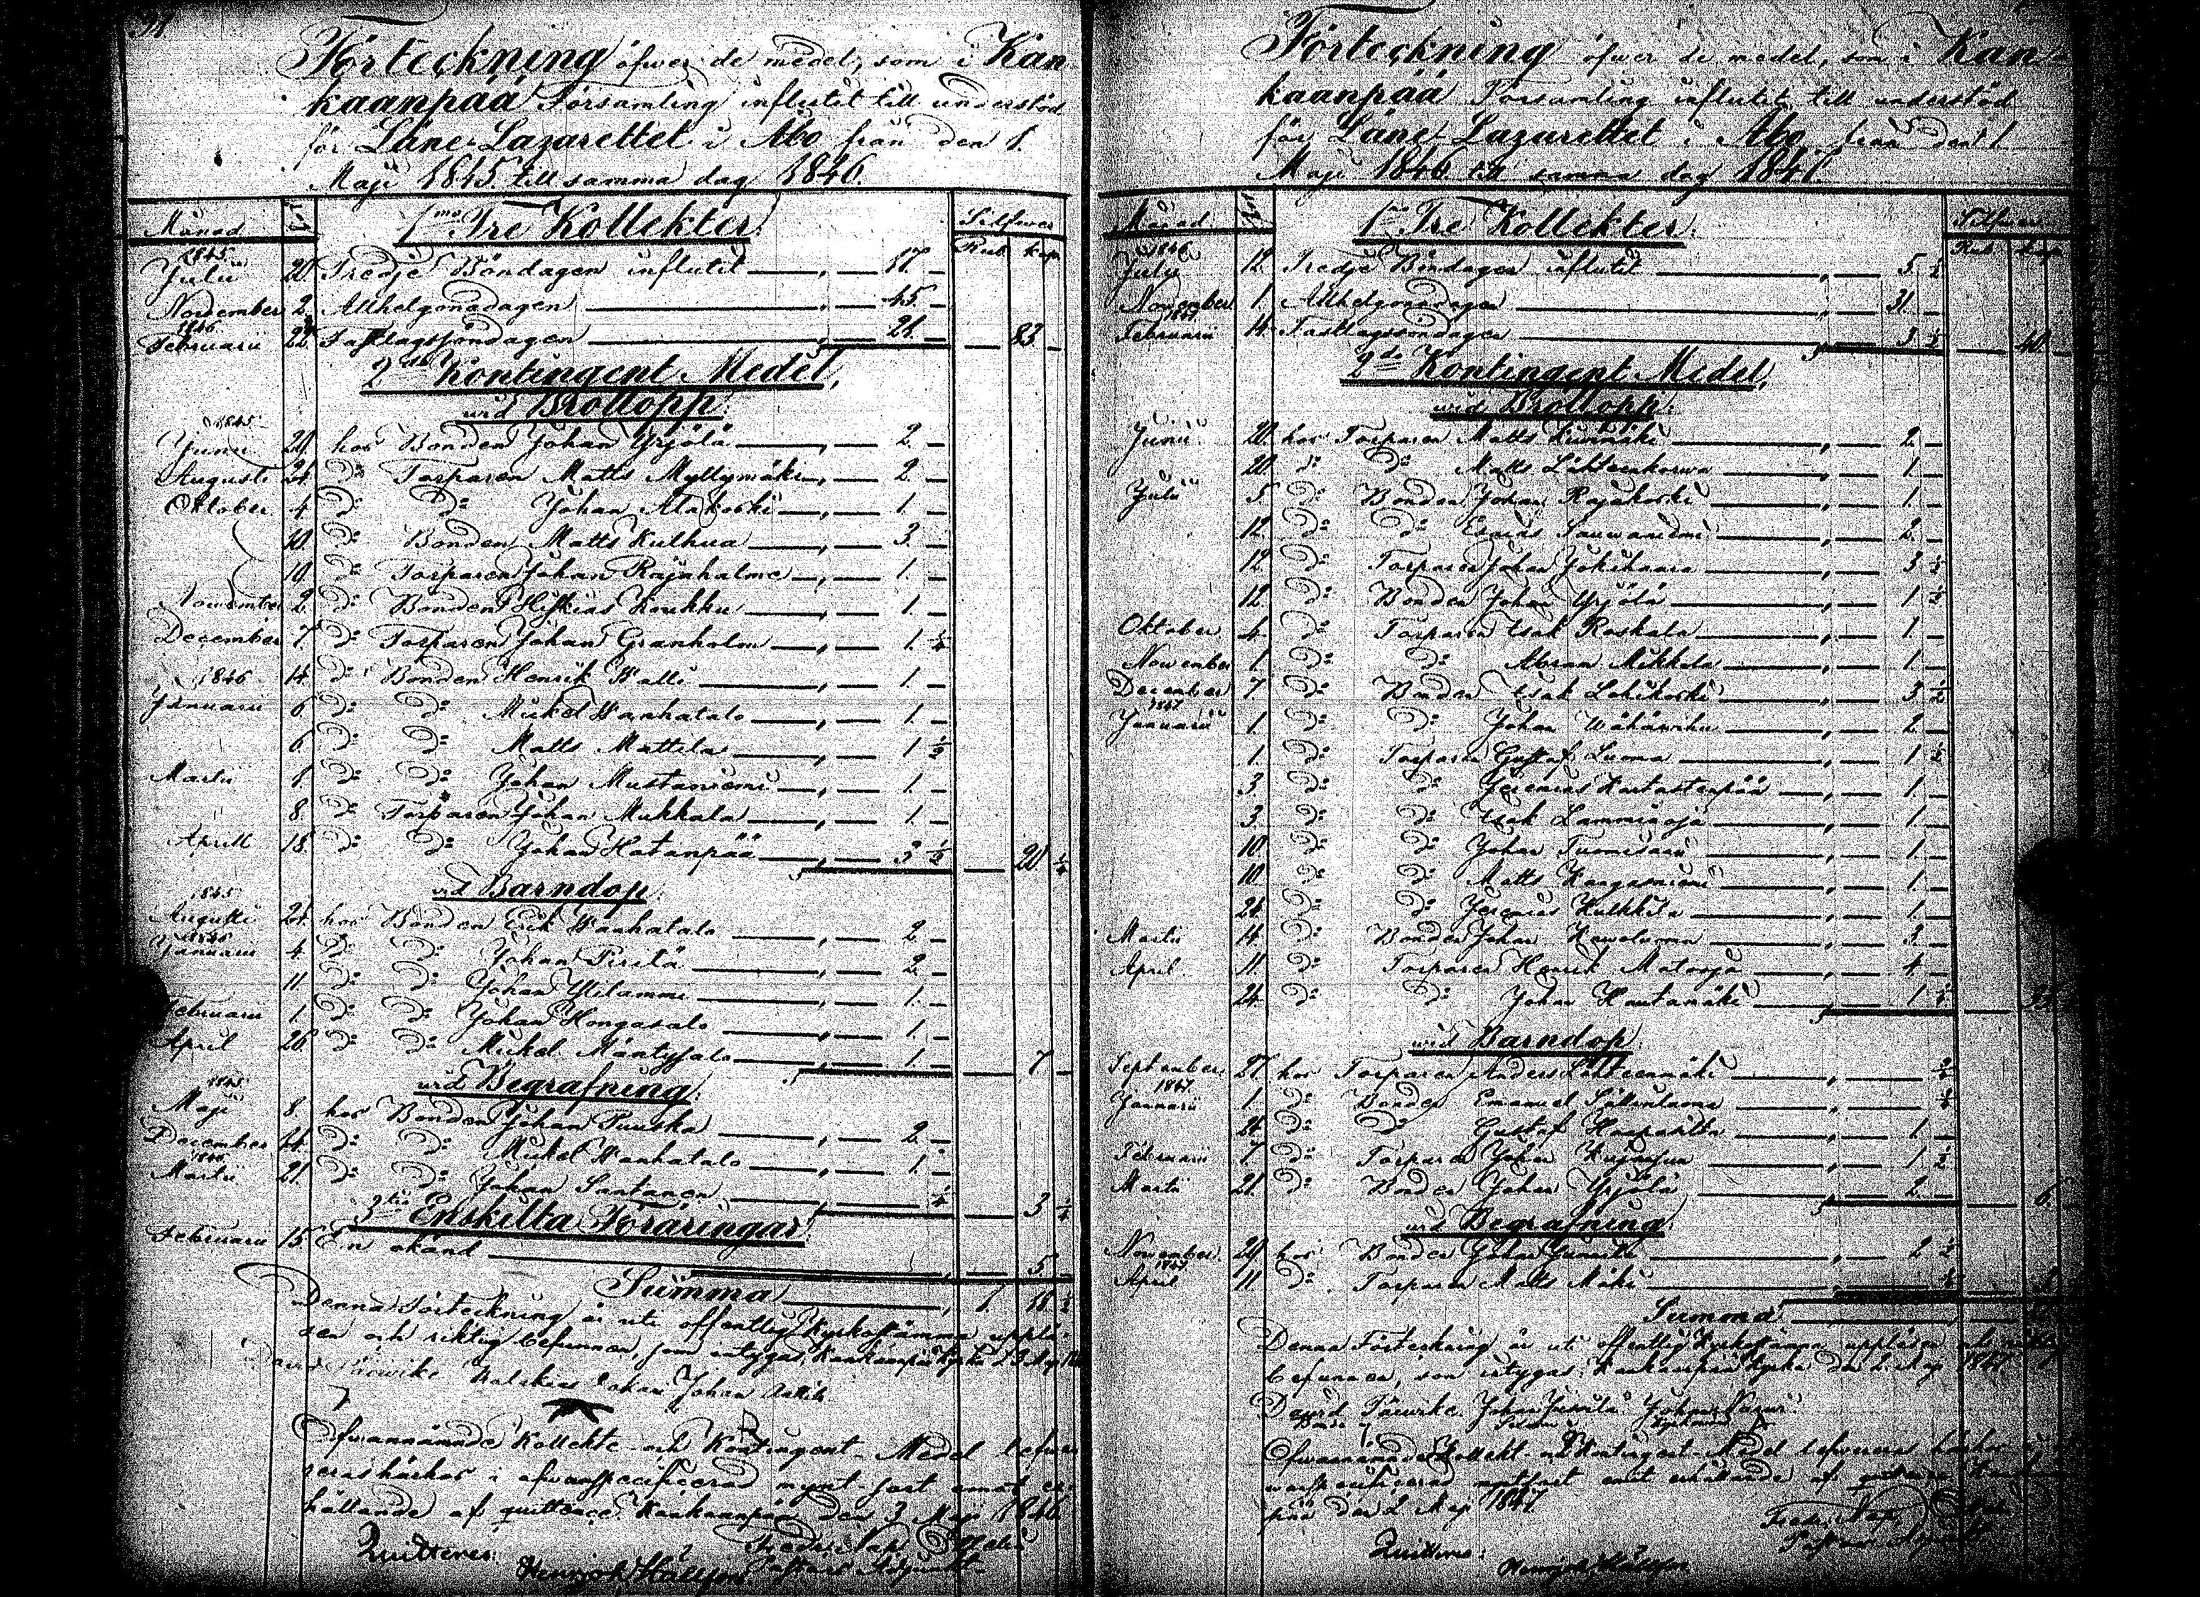 Förteckning öfwer de medel, som i Kan-
kaanpää Församling influtit till understöd
för Läne-Lazarettet i Åbo från den 1.
Maji 1845. till samma dag 1846.
Månad
1mo Tre Kollekter.
Silfwer
Rub. Kop.
1845
Julii 20. Tredje Böndagen influtit 17.
November 2. Allhelgonadagen 45.
1846
Februarii 22. Fastlagssöndagen 21. 83
2do Kontingent Medel,
wid Bröllopp:
1845
Junii 29. hos Bonden Johan Yrjölä 2.
Augusti 24. D:o Torparen Matts Myllymäki 2.
Oktober 4. D:o D:o Johan Alakoski 1.
10. D:o Bonden Matts Kulhua 3.
19. D:o Torparen Johan Rajahalme 1.
November 2. D:o Bonden Hiskias Koukku 1.
December 7. D:o Torparen Johan Granholm 1. 1/4
14. D:o Bonden Henrik Walli 1.
1846
Januarii 6. D:o D:o Mickel Wanhatalo 1.
6. D:o D:o Matts Mattila 1 1/2
Martii 1. D:o D:o Johan Mustaniemi 1.
8. D:o Torparen Johan Mukkala 1.
Aprill 18. D:o D:o Johan Hatanpää 3 1/2 20. 1/4
wid Barndop:
1845
Augusti 24. hos Bonden Erik Wanhatalo 2.
1846
Januarii 4. D:o D:o Johan Pirilä 2.
11. D:o D:o Johan Ylilammi 1.
Februarii 1. D:o D:o Johan Hongasalo 1.
April 26. D:o D:o Mickel Mäntysalo 1. 7
wid Begrafning:
1845
Maji 8. hos Bonden Johan Puuska 2.
December 24. D:o D:o Mickel Wanhatalo 1.
1846
Martii 21. D:o D:o Johan Santanen 1/4 3 1/4
3tio Enskilta Föräringar:
Februarii 15. En okänd 5.
Summa 1. 18 1/2
Denna Förteckning är uti offentlig Kyrkostämma upplä-
sen och riktig befunnen, som intygas, Kankaanpää Kyrka
Johan
Ofwannämnde Kollekte- och Kontingent-Medel lefwe-
reras härhos i ofwanspecificerad mynt-sort emot er-
hållande af quittence. Kankaanpää den 3 Maji 1846.
Quitteras:
Förteckning öfwer de medel, som i Kan-
kaanpää Församling influtit till understöd
för Läne-Lazarettet i Åbo från den 1.
Maji 1846. till samma dag 1847.
Månad
1mo Tre Kollekter.
Silfwer
Rub. Kop.
1846
Julii 12. Tredje Böndagen influtit 5. 1/2
November 1. Allhelgonadagen 31.
1847
Februarii 14. Fastlagssöndagen 3 1/2 40.
2do Kontingent Medel,
wid Bröllopp:
Junii 20. hos Torparen Matts 2.
20. D:o D:o Matts Lähteenkorwa 1.
Julii 5. D:o Bonden Johan Rajakoski 1.
12. D:o D:o Esaias Sauwaniemi 2.
12. D:o Torparen Johan 3 1/2
12. D:o Bonden Johan Yrjölä 1 1/2
Oktober 4. D:o Torparen Isak Raskala 1.
November 1. D:o D:o Abram Mikkola 1.
December 7. D:o Bonden Isak Lohikoski 3 1/2
1847
Januarii 1. D:o D:o Johan 2.
1. D:o Torparen Gustaf Luoma 1 1/2
3. D:o D:o Jeremias 1.
3. D:o D:o Isak Lamminoja 1.
10. D:o D:o Johan Tuomisaari 1.
10. D:o D:o Matts Kangasniemi 1.
24. D:o D:o Jeremias Kulkkila 1.
Martii 14. D:o Bonden Johan 3.
April 11. D:o Torparen Henrik Matooja 4.
24. D:o D:o Johan Hautamäki 1 1/2
wid Barndop:
September 27. hos Torparen Anders Lähteenmäki
1847
Januarii 1. D:o Bonden Emanuel
24. D:o D:o Gustaf 1.
Februarii 7. D:o Torparen Johan 1 1/2
Martii 21. D:o Bonden Johan Yrjölä 2. 6.
wid Begrafning:
November 29. hos Bonden Johan 2 1/2
1847
April 11. D:o Torparen Matts Mäki
Summa
Denna Förteckning är uti offentlig Kyrkostämma uppläsen och riktig
befunnen, som intygas. Kankaanpää Kyrka den 2 Maji 1847.
David Johan Johan
Ofwannämnde Kollekt- och Kontingent-Medel lefwereras härhos
emot erhållande af
pää den 2 Maji 1847
Quitteras: